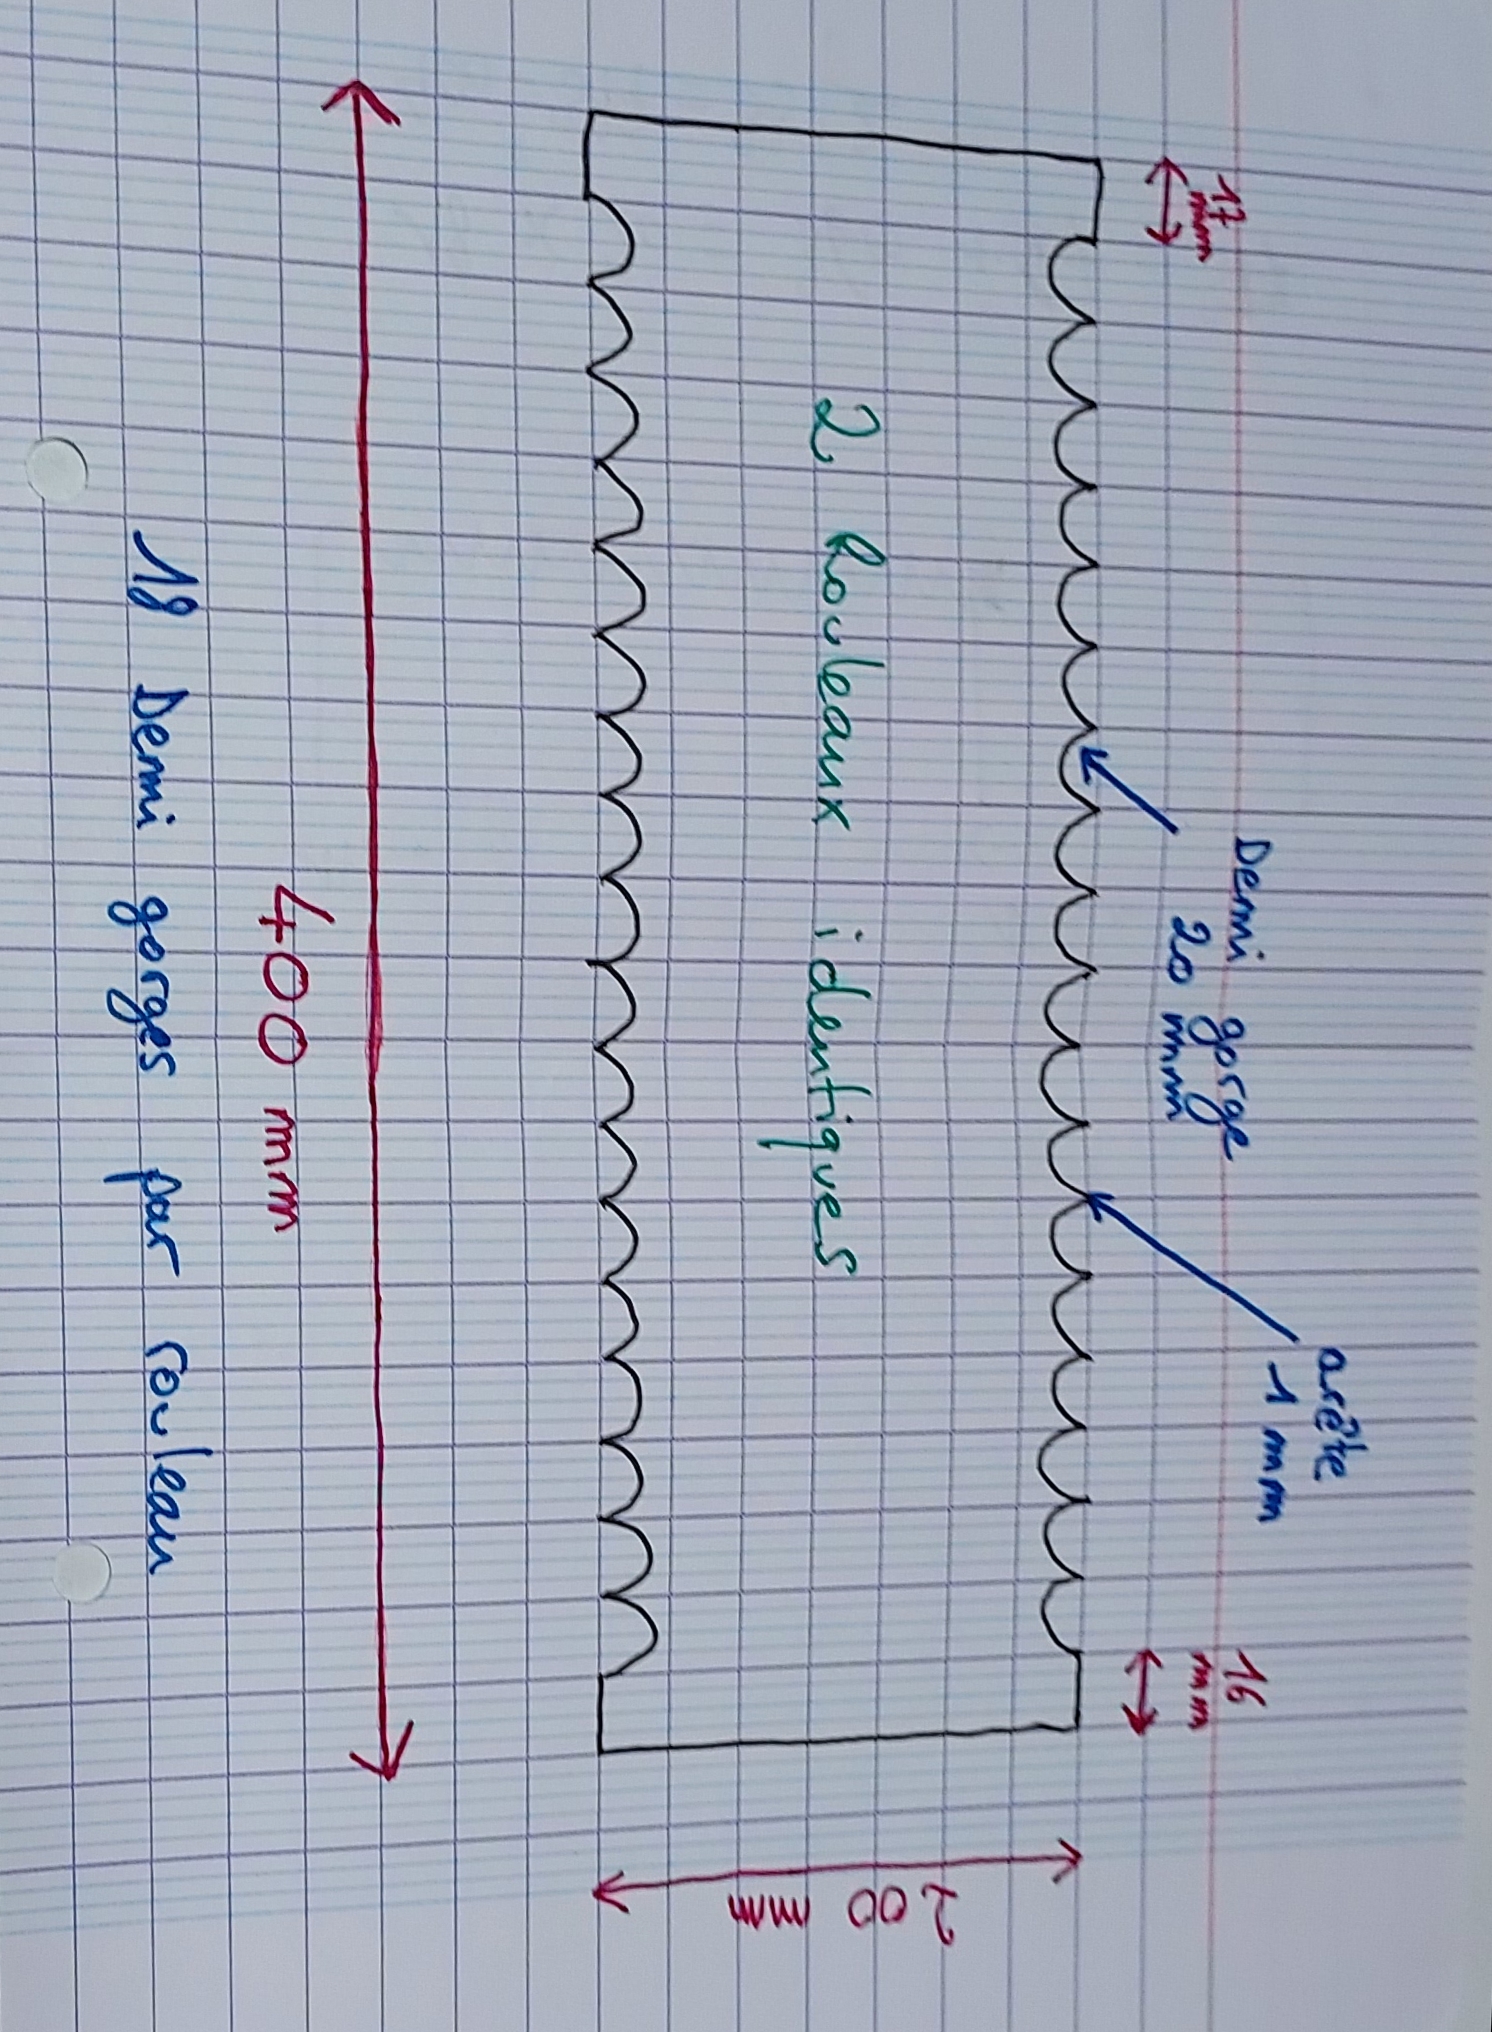 17
mm
Demi gorge
20 mm
arête
1 mm
16
mm
2 Rouleaux identiques
200 mm
400 mm
18 Demi gorges par rouleau